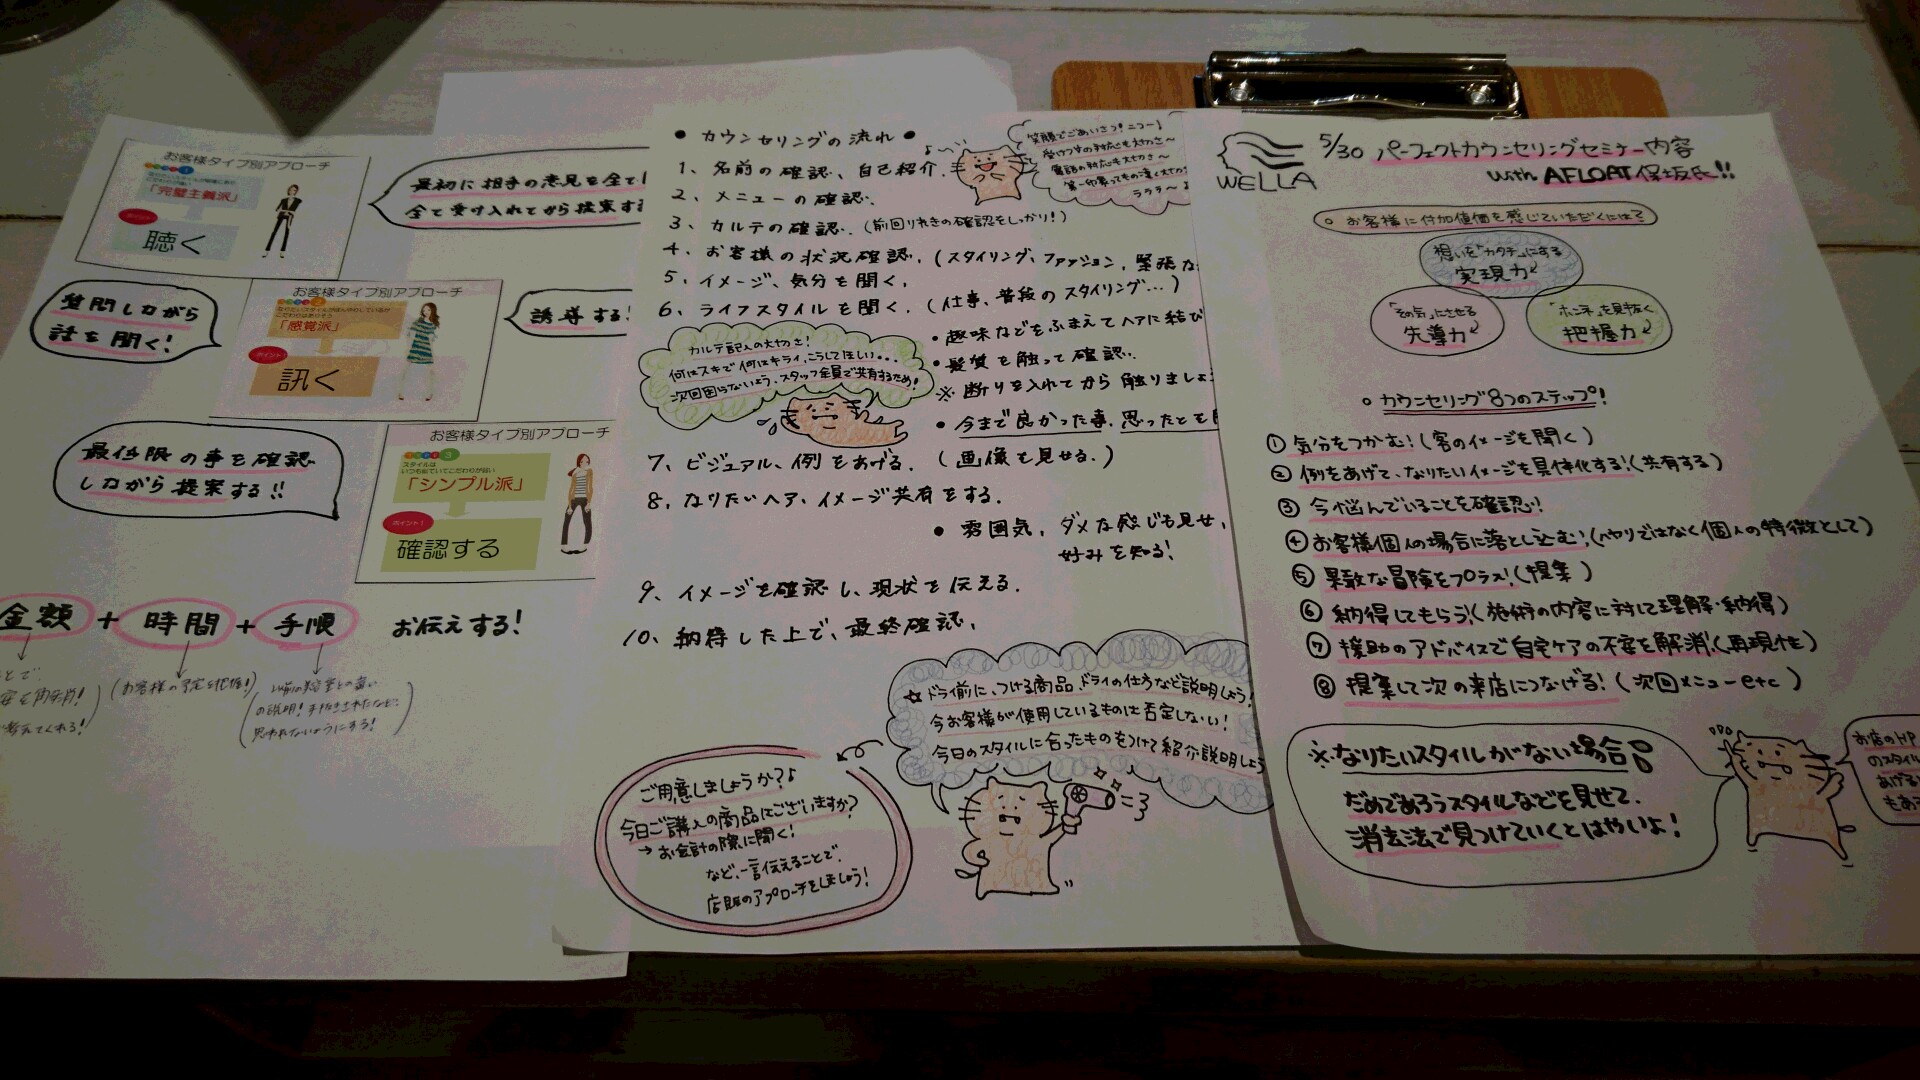 お客様タイプ別アプローチ
「完璧主義派」
ポイント!
聴く
最初に相手の意見を全て
全て受け入れてから提案する
質問しながら
話を聞く!
お客様タイプ別アプローチ
「感覚派」
ポイント!
訊く
誘導する!
最低限の事を確認
しながら提案する!!
お客様タイプ別アプローチ
スタイルは
いつも似ていてこだわりが低い
「シンプル派」
ポイント!
確認する
金額 + 時間 + 手順 お伝えする!
(お客様の予定を把握!)
の説明!手抜きされたなど
思われないようにする!
• カウンセリングの流れ •
1、名前の確認、自己紹介.
2、メニューの確認.
3、カルテの確認.(前回りれきの確認をしっかり!)
4、お客様の状況確認.(スタイリング、ファッション、緊張
5、イメージ、気分を聞く.
6、ライフスタイルを聞く.(仕事、普段のスタイリング…)
笑顔でごあいさつ!ニコー♪
電話の対応も大切さ〜
ラララ〜♪
• 趣味などをふまえてヘアに結び
• 髪質を触って確認.
※ 断りを入れてから触りましょ
• 今まで良かった事.思ったとを
カルテ記入の大切さ!
何はスキで何はキライ,こうしてほしい...
次回困らないよう、スタッフ全員で共有するため!
7、ビジュアル、例をあげる.(画像を見せる.)
8、なりたいヘア、イメージ共有をする.
• 雰囲気.ダメな感じも見せ、
好みを知る!
9、イメージを確認し、現状を伝える.
10、納得した上で、最終確認.
☆ドライ前に、つける商品、ドライの仕方など説明しよう!
今お客様が使用しているものは否定しない!
今日のスタイルに合ったものをつけて紹介説明しよう
ご用意しましょうか?♪
今日ご購入の商品はございますか?
→お会計の際に聞く!
など、一言伝えることで、
店販のアプローチをしましょう!
WELLA
5/30 パーフェクトカウンセリングセミナー内容
with AFLOAT保坂氏!!
○ お客様に付加価値を感じていただくには?
想いを「カタチ」にする
実現力
「その気」にさせる
先導力
「ホンネ」を見抜く
把握力
○ カウンセリング8つのステップ!
① 気分をつかむ!(客のイメージを聞く)
② 例をあげて、なりたいイメージを具体化する!(共有する)
③ 今悩んでいることを確認!!
④ お客様個人の場合に落とし込む!(ヘヤリではなく個人の特徴として)
⑤ 果敢な冒険をプラス!(提案)
⑥ 納得してもらう!(施術の内容に対して理解・納得)
⑦ 援助のアドバイスで自宅ケアの不安を解消!(再現性)
⑧ 提案して次の来店につなげる!(次回メニューetc)
※なりたいスタイルがない場合
だめであろうスタイルなどを見せて、
消去法で見つけていくとはやいよ!
お店のHP
のスタイル
あげる